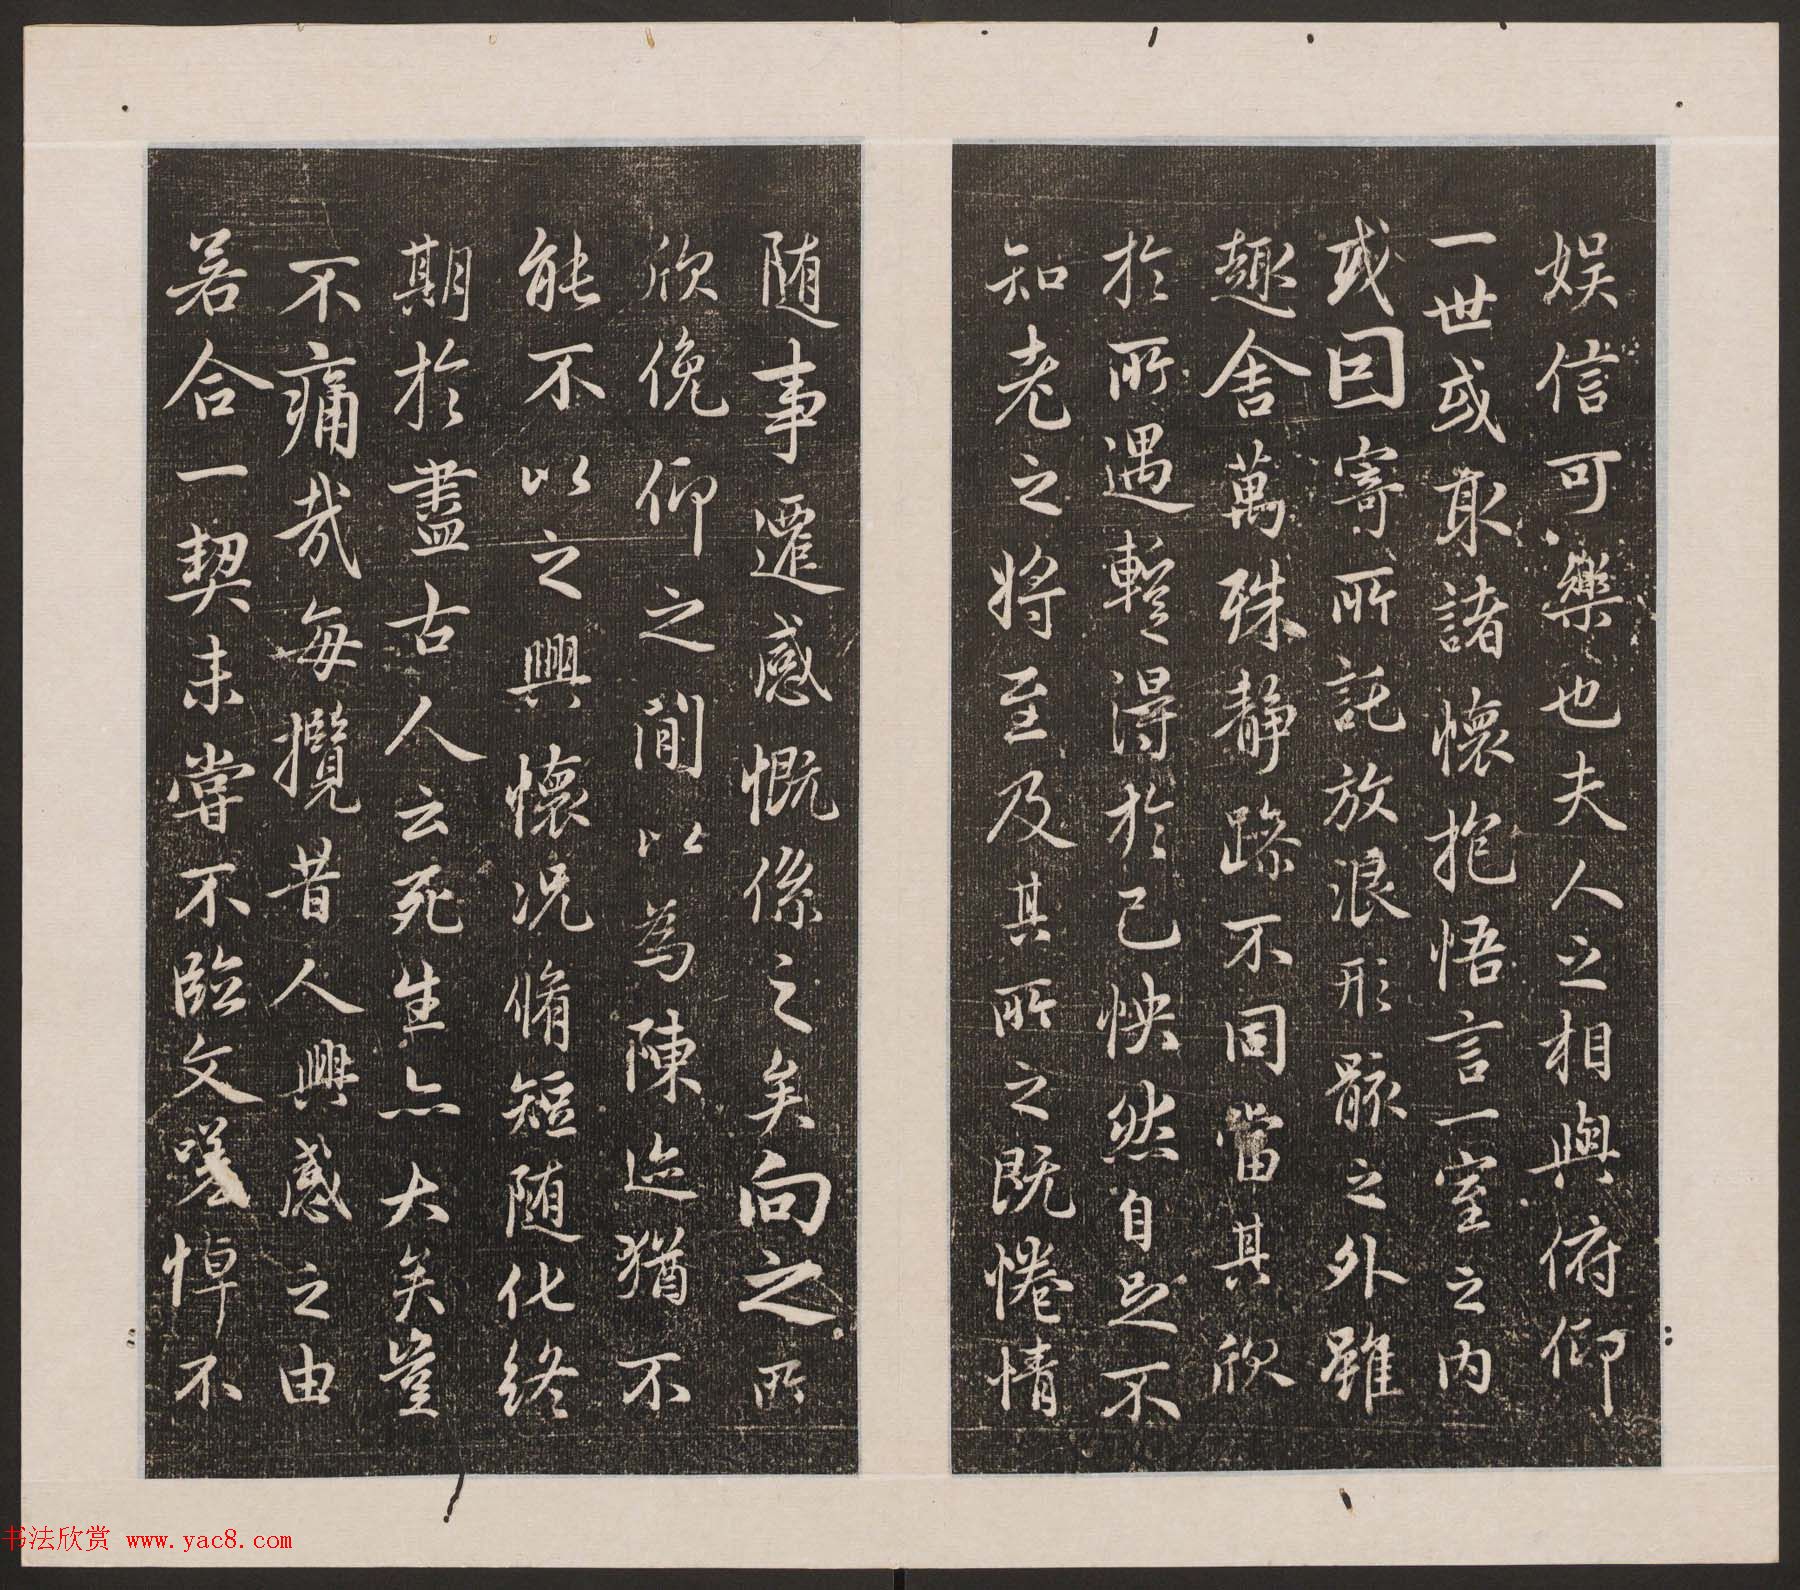 娱信可樂也夫人之相與俯仰
一世或取諸懷抱悟言一室之内
或因寄所託放浪形骸之外雖
趣舍萬殊静躁不同當其欣
於所遇暫得於己怏然自足不
知老之將至及其所之既惓情
随事遷感慨係之矣向之所
欣俛仰之閒以為陳迹猶不
能不以之興懷况脩短随化終
期於盡古人云死生亦大矣豈
不痛哉每攬昔人興感之由
若合一契未嘗不臨文嗟悼不
书法欣赏 www.yac8.com